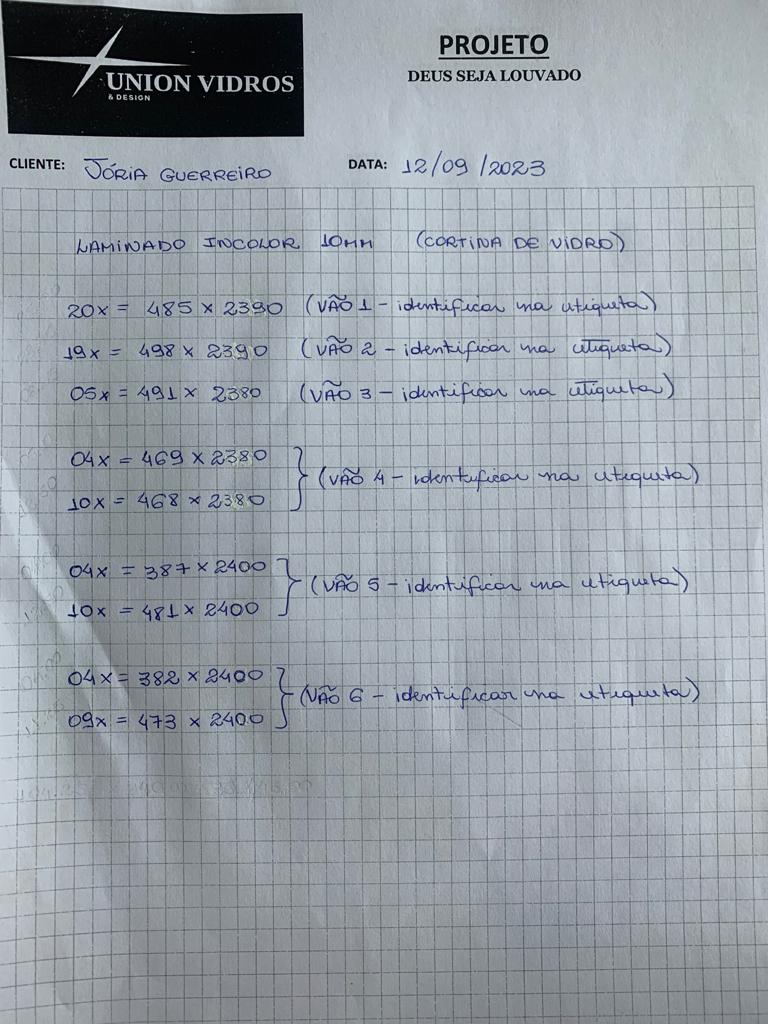 UNION VIDROS
& DESIGN
PROJETO
DEUS SEJA LOUVADO
CLIENTE: JÓRIA GUERREIRO DATA: 12/09/2023
LAMINADO INCOLOR 10MM (CORTINA DE VIDRO)
20x = 485 x 2390 (VÃO 1 - identificar na etiqueta)
19x = 498 x 2390 (VÃO 2 - identificar na etiqueta)
05x = 491 x 2380 (VÃO 3 - identificar na etiqueta)
04x = 469 x 2380
(VÃO 4 - identificar na etiqueta)
10x = 468 x 2380
04x = 387 x 2400
(VÃO 5 - identificar na etiqueta)
10x = 481 x 2400
04x = 382 x 2400
(VÃO 6 - identificar na etiqueta)
09x = 473 x 2400